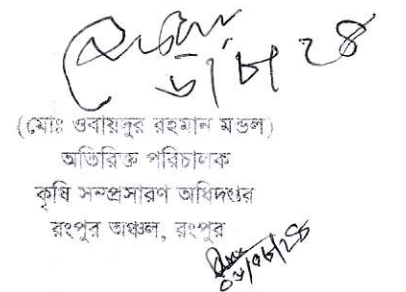 ৬/৮/২৪
(মোঃ ওবায়দুর রহমান মন্ডল)
অতিরিক্ত পরিচালক
কৃষি সম্প্রসারণ অধিদপ্তর
রংপুর অঞ্চল, রংপুর
০৬/০৮/২৪